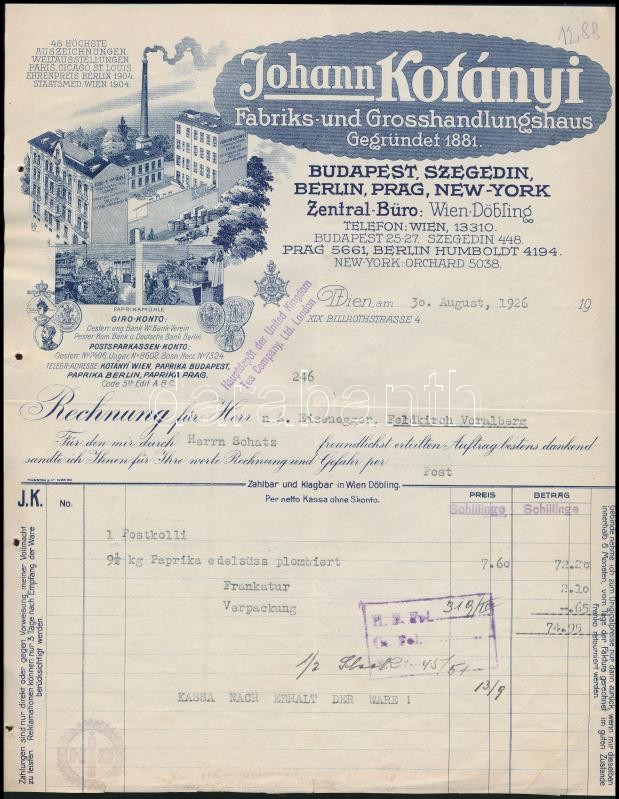 12,88
48 HÖCHSTE
AUSZEICHNUNGEN.
WELTAUSSTELLUNGEN
PARIS, CICAGO, ST. LOUIS.
EHRENPREIS BERLIN 1904.
STAATSMED. WIEN 1904.
Johann Kotányi
Fabriks- und Grosshandlungshaus
Gegründet 1881.
BUDAPEST, SZEGEDIN,
BERLIN, PRAG, NEW-YORK
Zentral-Büro: Wien-Döbling
TELEFON: WIEN, 13310.
BUDAPEST 25-27. SZEGEDIN 448.
PRAG 5661, BERLIN HUMBOLDT 4194.
NEW-YORK: ORCHARD 5038.
PAPRIKAMÜHLE
GIRO-KONTO:
Oesterr. ung. Bank Wr. Bank-Verein
Pester Kom. Bank u. Deutsche Bank Berlin.
POSTSPARKASSEN-KONTO:
Oesterr. No 7496. Ungar. No 8602. Bosn. Herz. No 7324.
TELEGR.-ADRESSE: KOTÁNYI WIEN, PAPRIKA BUDAPEST,
PAPRIKA BERLIN, PAPRIKA PRAG.
Code 5th Edit A.B.C.
Hauptdepôt der United Kingdom
Tea Company, Ltd. London
Wien, am 30. August, 1926 19
XIX BILLROTHSTRASSE 4.
246
darabanth
Rechnung für Herr n A. Eisenegger, Feldkirch Voralberg
Für den mir durch Herrn Schatz freundlichst erteilten Auftrag bestens dankend
sandte ich Ihnen für Ihre werte Rechnung und Gefahr per Post
Zahlbar und klagbar in Wien Döbling.
J.K. No. Per netto Kassa ohne Skonto. PREIS BETRAG
Schillinge Schillinge
1 Postkolli
9½ kg Paprika edelsüss plombiert 7.60 72.20
Frankatur 2.10
Verpackung -.65
74.95
KASSA NACH ERHALT DER WARE !
13/9
Zahlungen sind nur direkt oder gegen Vorweisung meiner Vollmacht
zu leisten. Reklamationen können nur 3 Tage nach Empfang der Ware
berücksichtigt werden.
Gebinde nehme ich zum Originalpreise nur dann zurück, wenn mir dieselben
innerhalb 6 Monaten, vom Tage der Faktura gerechnet im guten Zustande
franko retourniert werden.